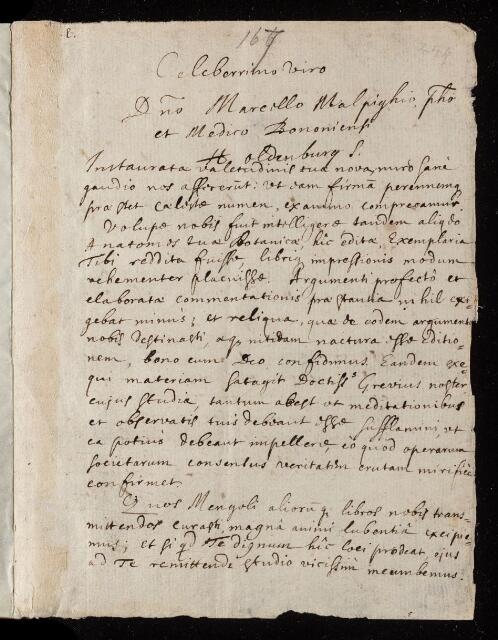 167
Celeberrimo viro
Dno Marcello Malpighio, pho
et Medico Bononiensi
H. Oldenburg S.
Instaurata valetudinis tuæ nova, miro sanè
gaudio nos affecerût: ut eam firmã perennemq
præstet cæleste numen, ex animo comprecamur.
Volupe nobis fuit intelligere tandem aliqdo
Anatomes tuæ Botanicæ, hîc editæ, Exemplaria
Tibi reddita fuisse, libriq impressionis modum
vehementer placuisse. Argumenti profectò et
elaboratæ commentationis præstantia nihil exi-
gebat minus; et reliqua, quæ de eodem argumento
nobis destinasti, æq nitidam nactura esse editio-
nem, bono cum Deo confidimus. Eandem exe-
qui materiam satagit Doctiss. Grevius noster
cujus studia tantum abest ut meditationibus
et observatis tuis debeant esse sufflamini, ut
ea potius debeant impellere, eò quòd operarum
societarum consensus veritatem erutam mirificè
confirmet.
Quos Mengoli aliorumq libros nobis trans-
mittendos curasti, magnâ animi lubentiâ excipie-
mus; et si qd Te dignum hîc loci prodeat, ejus
ad Te remittendi studio vicissim incumbemus.